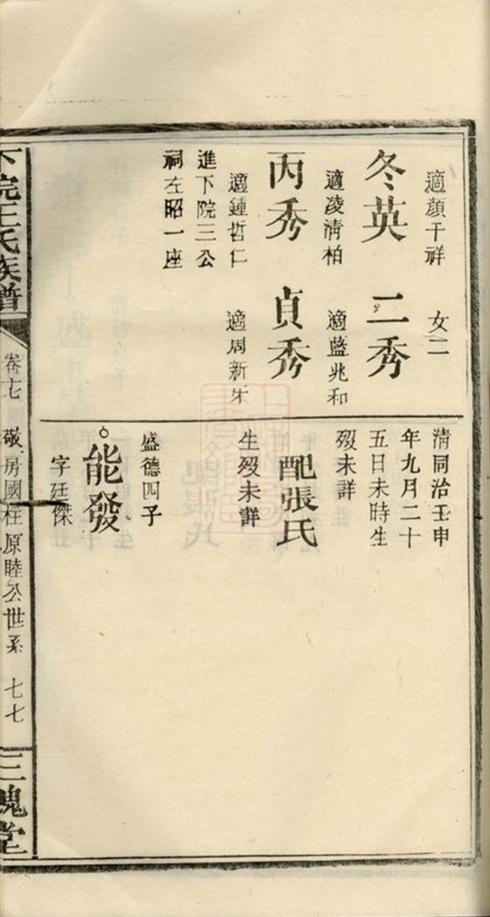 適顏于祥 女二
冬英 二秀
適凌清柏 適藍兆和
丙秀 貞秀
適鍾哲仁 適周新牙
進下院三公
祠左昭一座
清同治壬申
年九月二十
五日未時生
歿未詳
配張氏
生歿未詳
盛德四子
能發
字廷傑
下院王氏族譜 卷十七 敬房國柱原睦公世系 七七 三槐堂